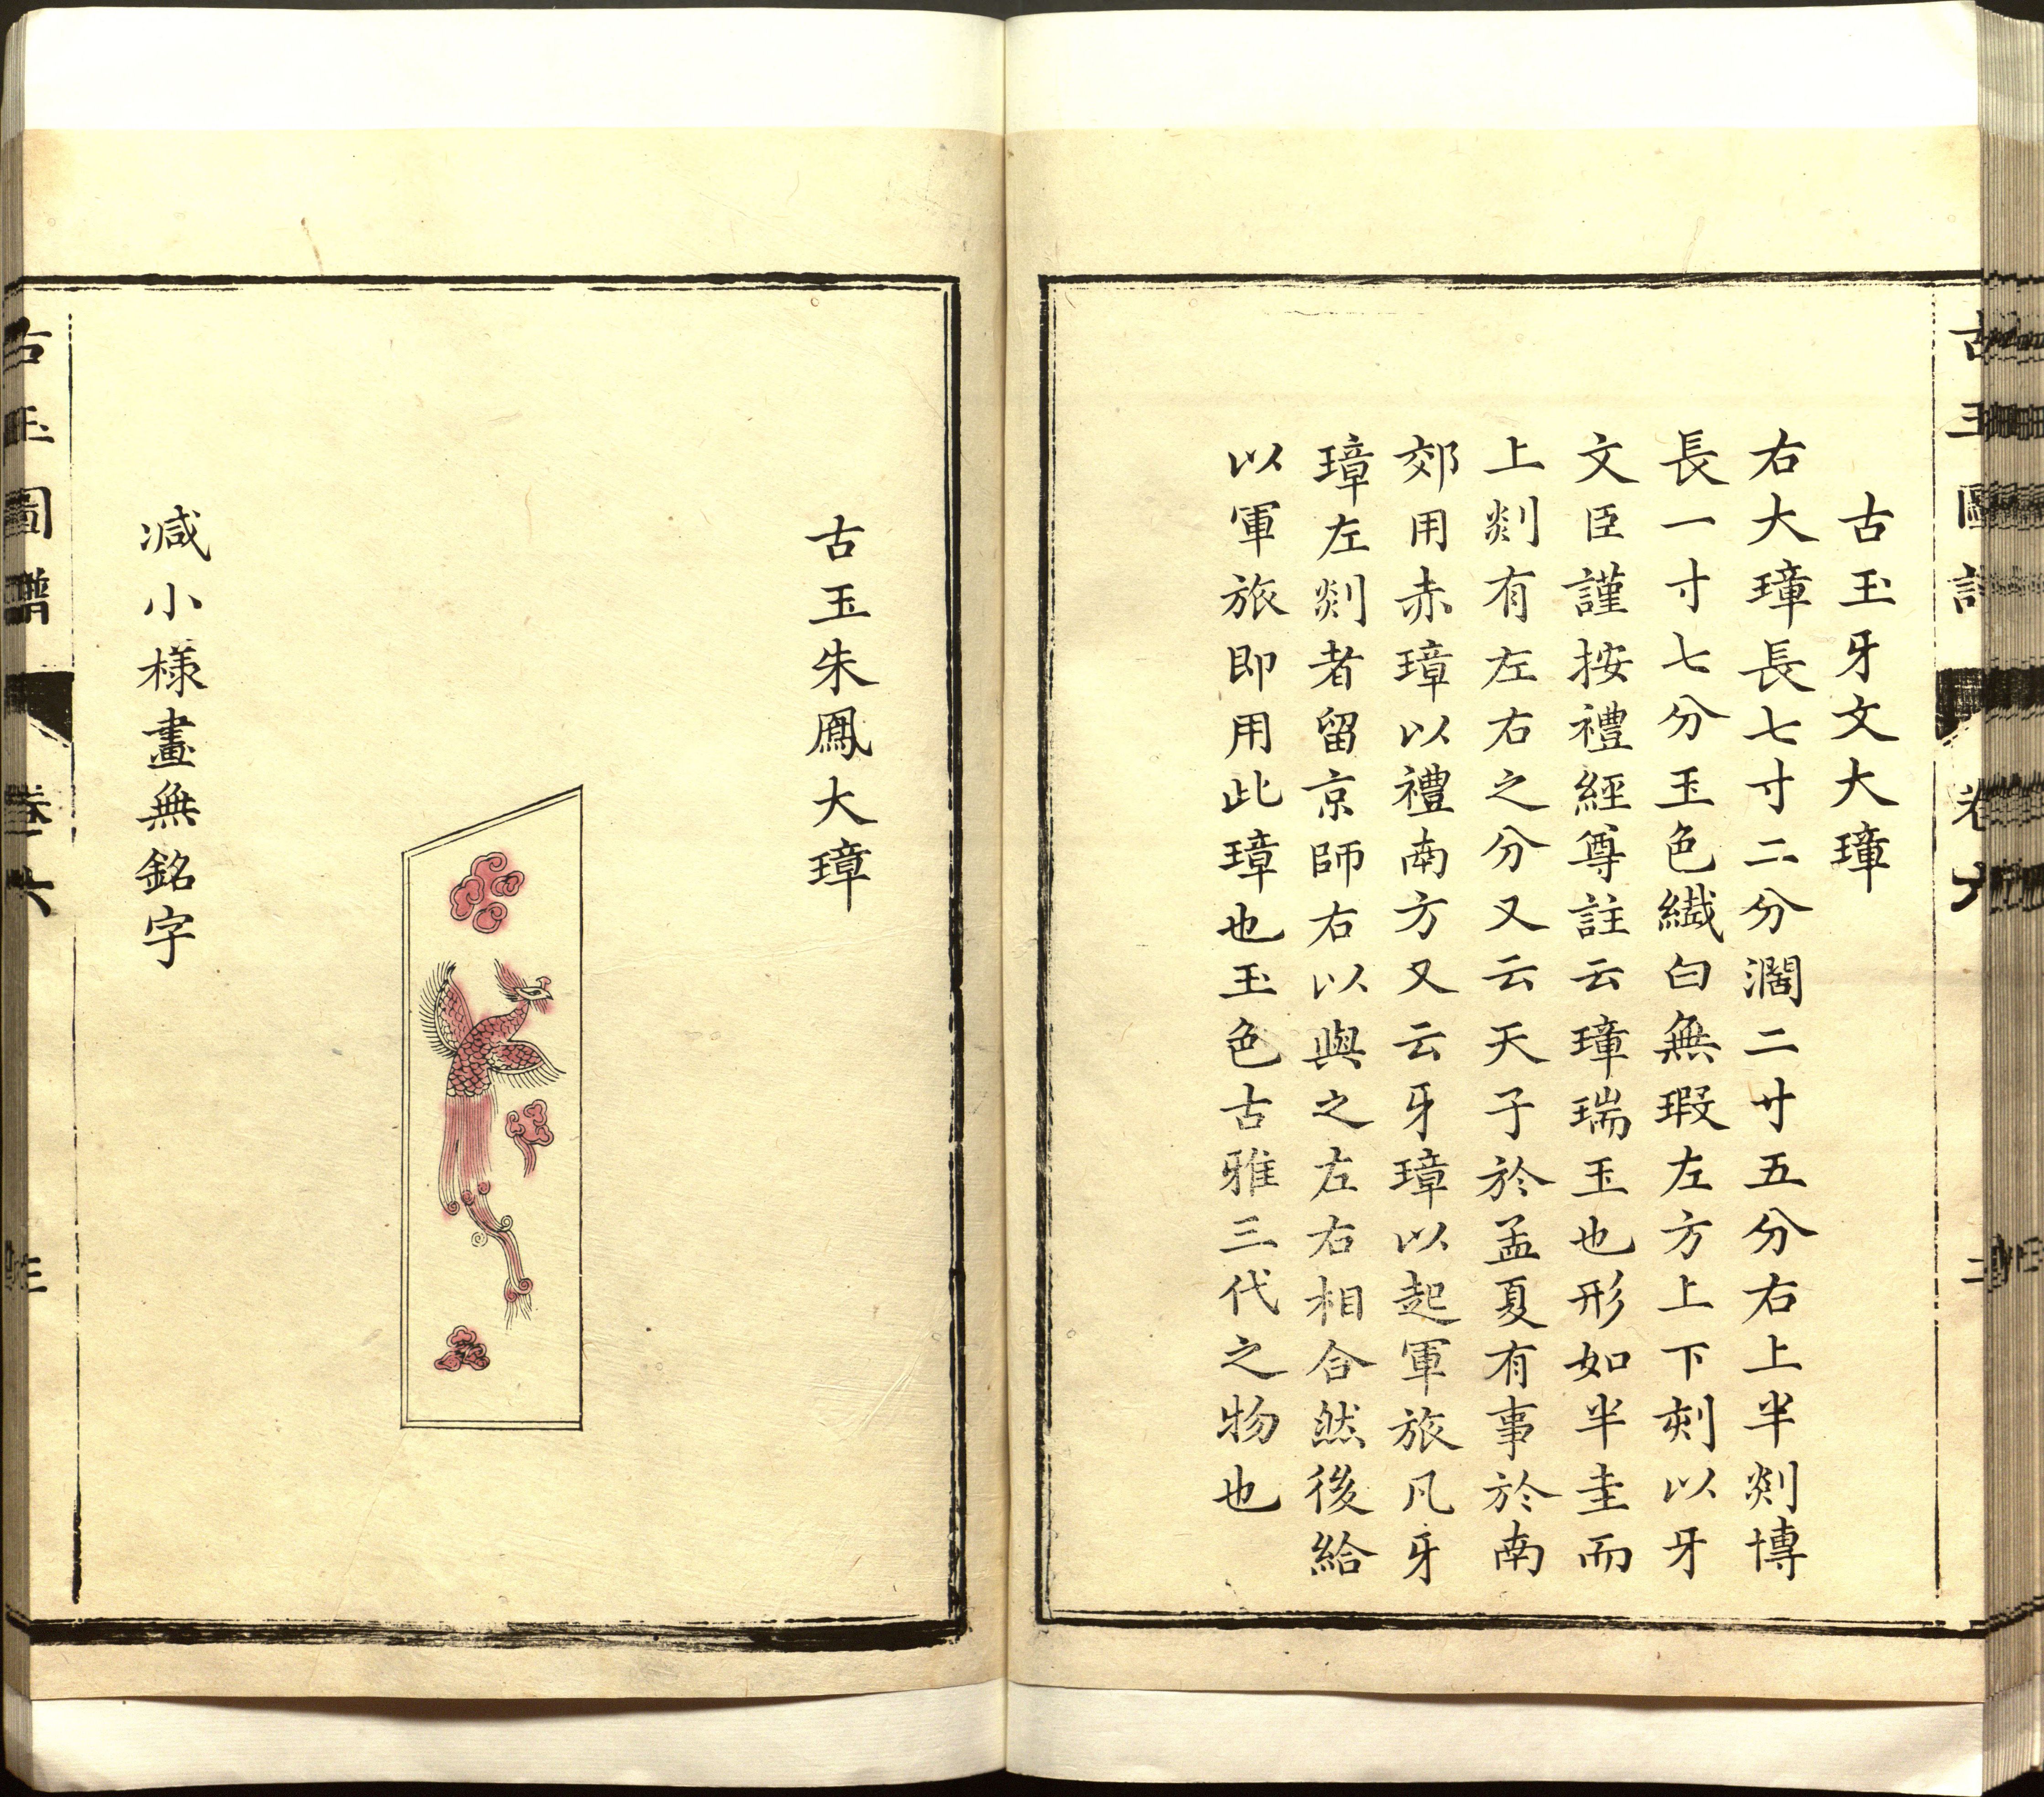 古玉牙文大璋
右大璋長七寸二分濶二寸五分右上半剡博
長一寸七分玉色纖白無瑕左方上下刻以牙
文臣謹按禮經尊註云璋瑞玉也形如半圭而
上剡有左右之分又云天子於孟夏有事於南
郊用赤璋以禮南方又云牙璋以起軍旅凡牙
璋左剡者留京師右以與之左右相合然後給
以軍旅即用此璋也玉色古雅三代之物也
古玉朱鳳大璋
減小樣畫無銘字
古玉圖譜
卷六